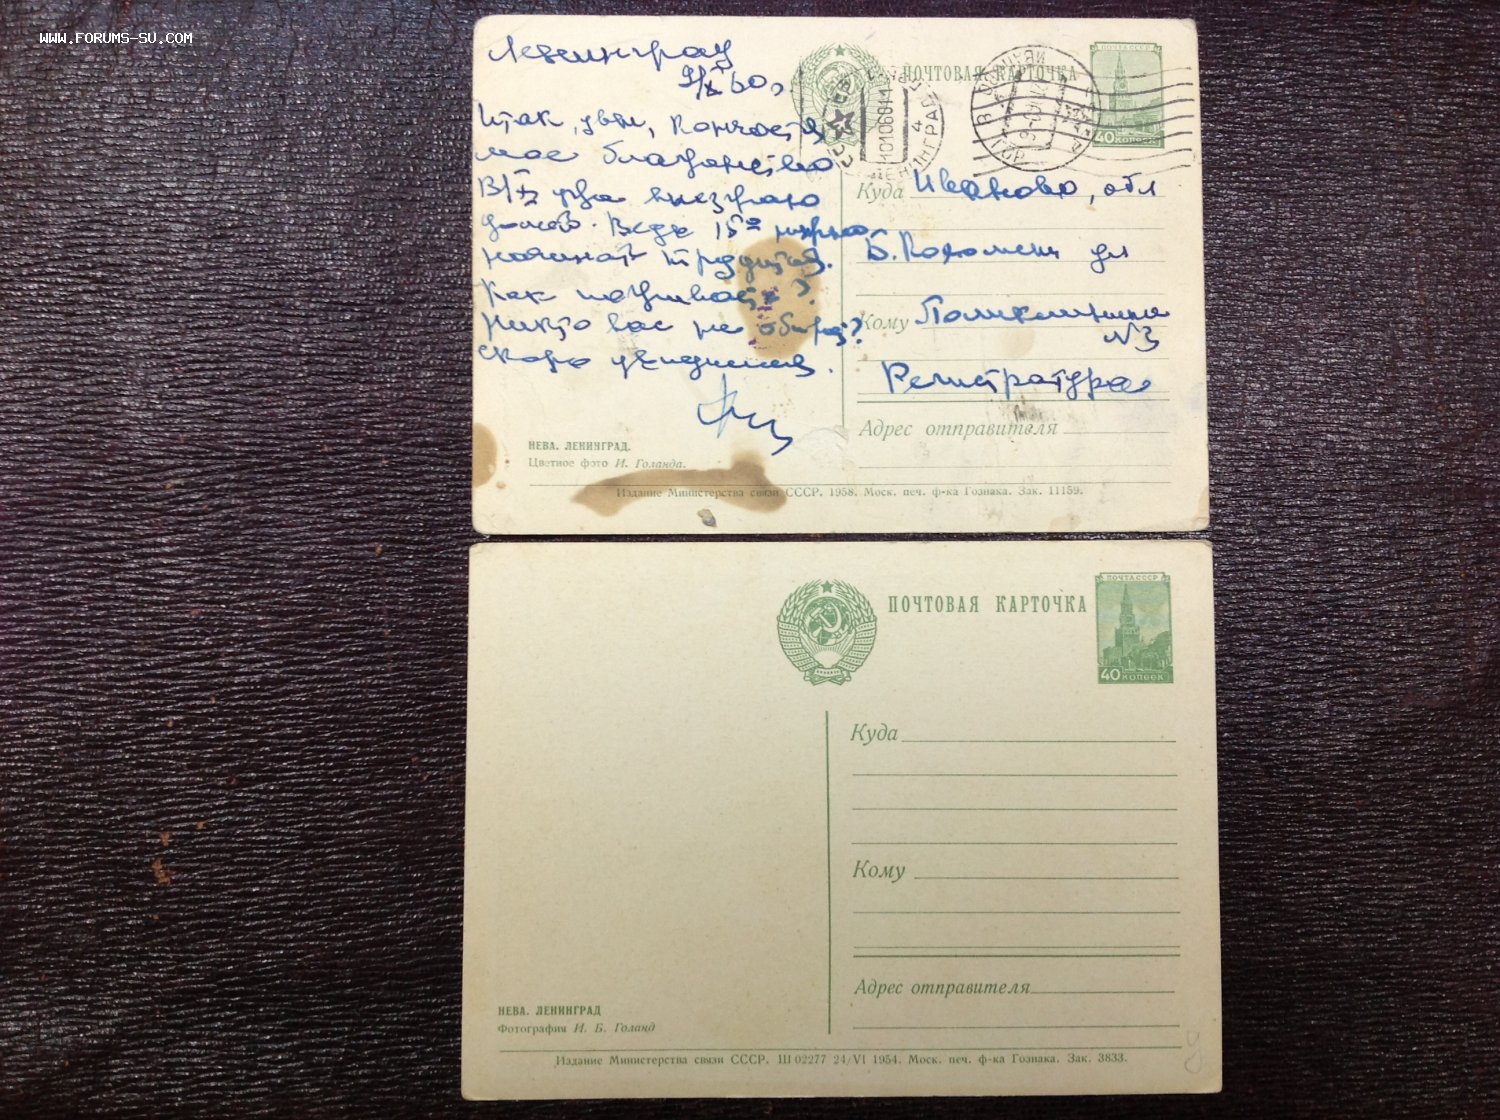 WWW.FORUMS-SU.COM
Ленинград
9/X 60г
Итак, увы, кончается
мое
В/I
домой. Ведь 15го нужно
начинать трудиться.
Как поживаете?
Никто вас не обижает?
Скоро увидимся.
НЕВА. ЛЕНИНГРАД.
Цветное фото И. Голанда.
ПОЧТОВАЯ КАРТОЧКА
ПОЧТА СССР
40 КОПЕЕК
СССР
ЛЕНИНГРАД
Куда Иваново, обл
ул
Кому Поликлиника
N3
Регистратура
Адрес отправителя
Издание Министерства связи СССР. 1958. Моск. печ. ф-ка Гознака. Зак. 11159.
ПОЧТОВАЯ КАРТОЧКА
ПОЧТА СССР
40 КОПЕЕК
Куда
Кому
Адрес отправителя
НЕВА. ЛЕНИНГРАД
Фотография И. Б. Голанд
Издание Министерства связи СССР. Ш 02277 24/VI 1954. Моск. печ. ф-ка Гознака. Зак. 3833.